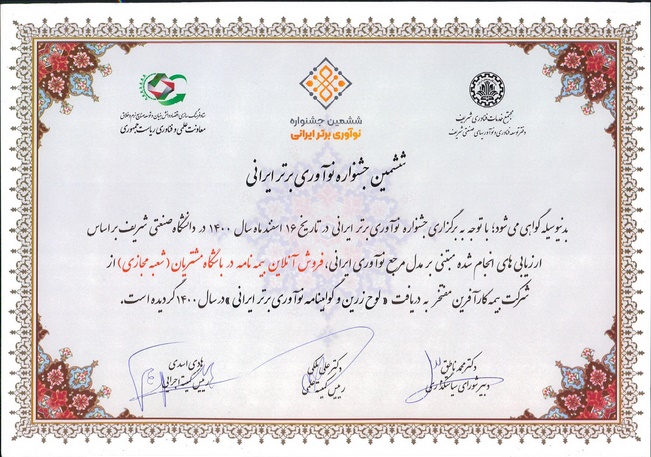 مجتمع خدمات فناوری شریف
دفتر توسعه فناوری و نوآوریهای صنعتی شریف
ششمین جشنواره
نوآوری برتر ایرانی
معاونت علمی و فناوری ریاست جمهوری
ششمین جشنواره نوآوری برتر ایرانی
بدینوسیله گواهی می شود؛ با توجه به برگزاری جشنواره نوآوری برتر ایرانی در تاریخ ۱۶ اسفند ماه سال ۱۴۰۰ در دانشگاه صنعتی شریف بر اساس
ارزیابی های انجام شده مبتنی بر مدل مرجع نوآوری ایرانی، فروش آنلاین بیمه نامه در باشگاه مشتریان (شعبه مجازی) از
شرکت بیمه کارآفرین مفتخر به دریافت «لوح زرین و گواهینامه نوآوری برتر ایرانی» در سال ۱۴۰۰ گردیده است.
دکتر محمد ناطق
دبیر شورای سیاستگذاری
دکتر علی ملکی
رییس کمیته علمی
هادی اسدی
رییس کمیته اجرایی